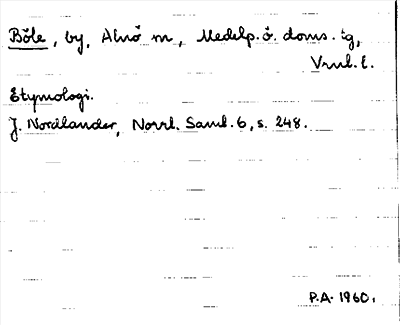 Böle, by, Alnö sn, Medelp. ö. doms. tg,
Vrnl. l.
Etymologi.
J. Nordlander, Norrl. Saml. 6, s. 248.
P.A. 1960.